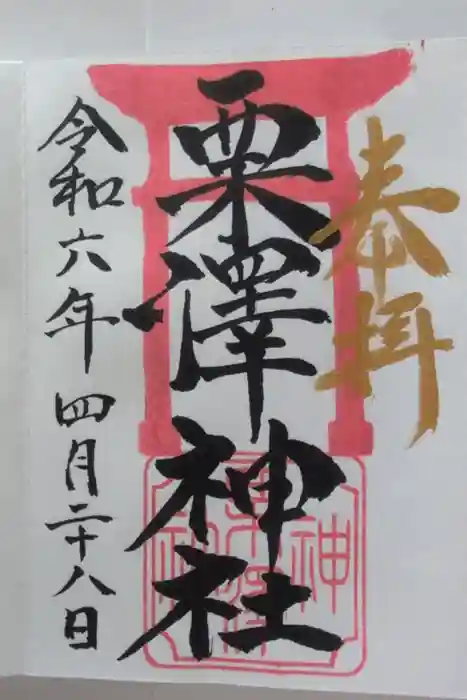 奉拝
栗澤神社
令和六年四月二十八日